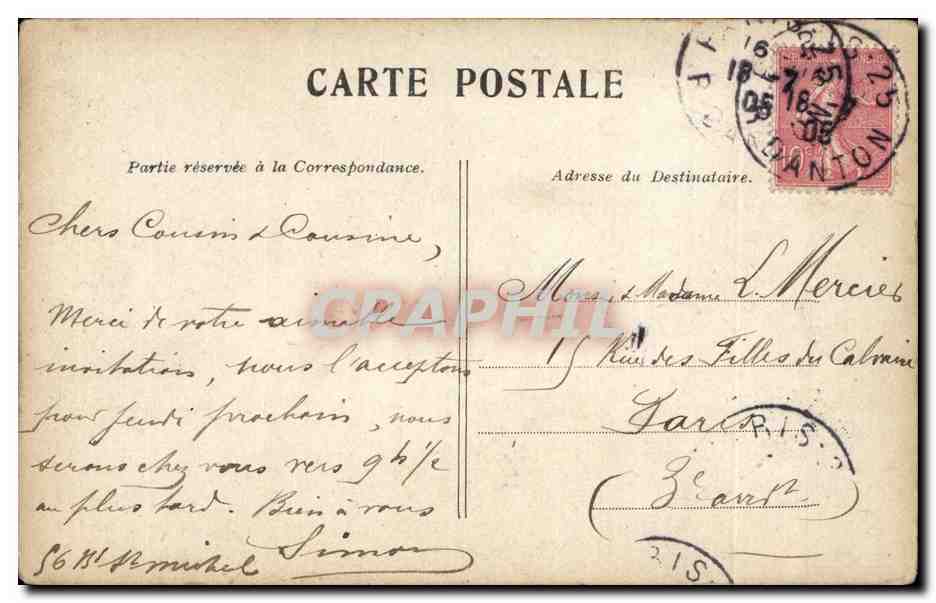 CARTE POSTALE
Partie réservée à la Correspondance.
Adresse du Destinataire.
Chers Cousin & Cousine,
Merci de votre aimable
invitation, nous l'acceptons
pour jeudi prochain, nous
serons chez vous vers 9h 1/2
au plus tard. Bien à vous
Simon
56 Bd St michel
Mons. & Madame L. Mercier
15 Rue des Filles du Calvaire
Paris
(3e arrdt)
25 DANTON
16
18 -7
05
RIS
RIS
10c
CPAPHIL